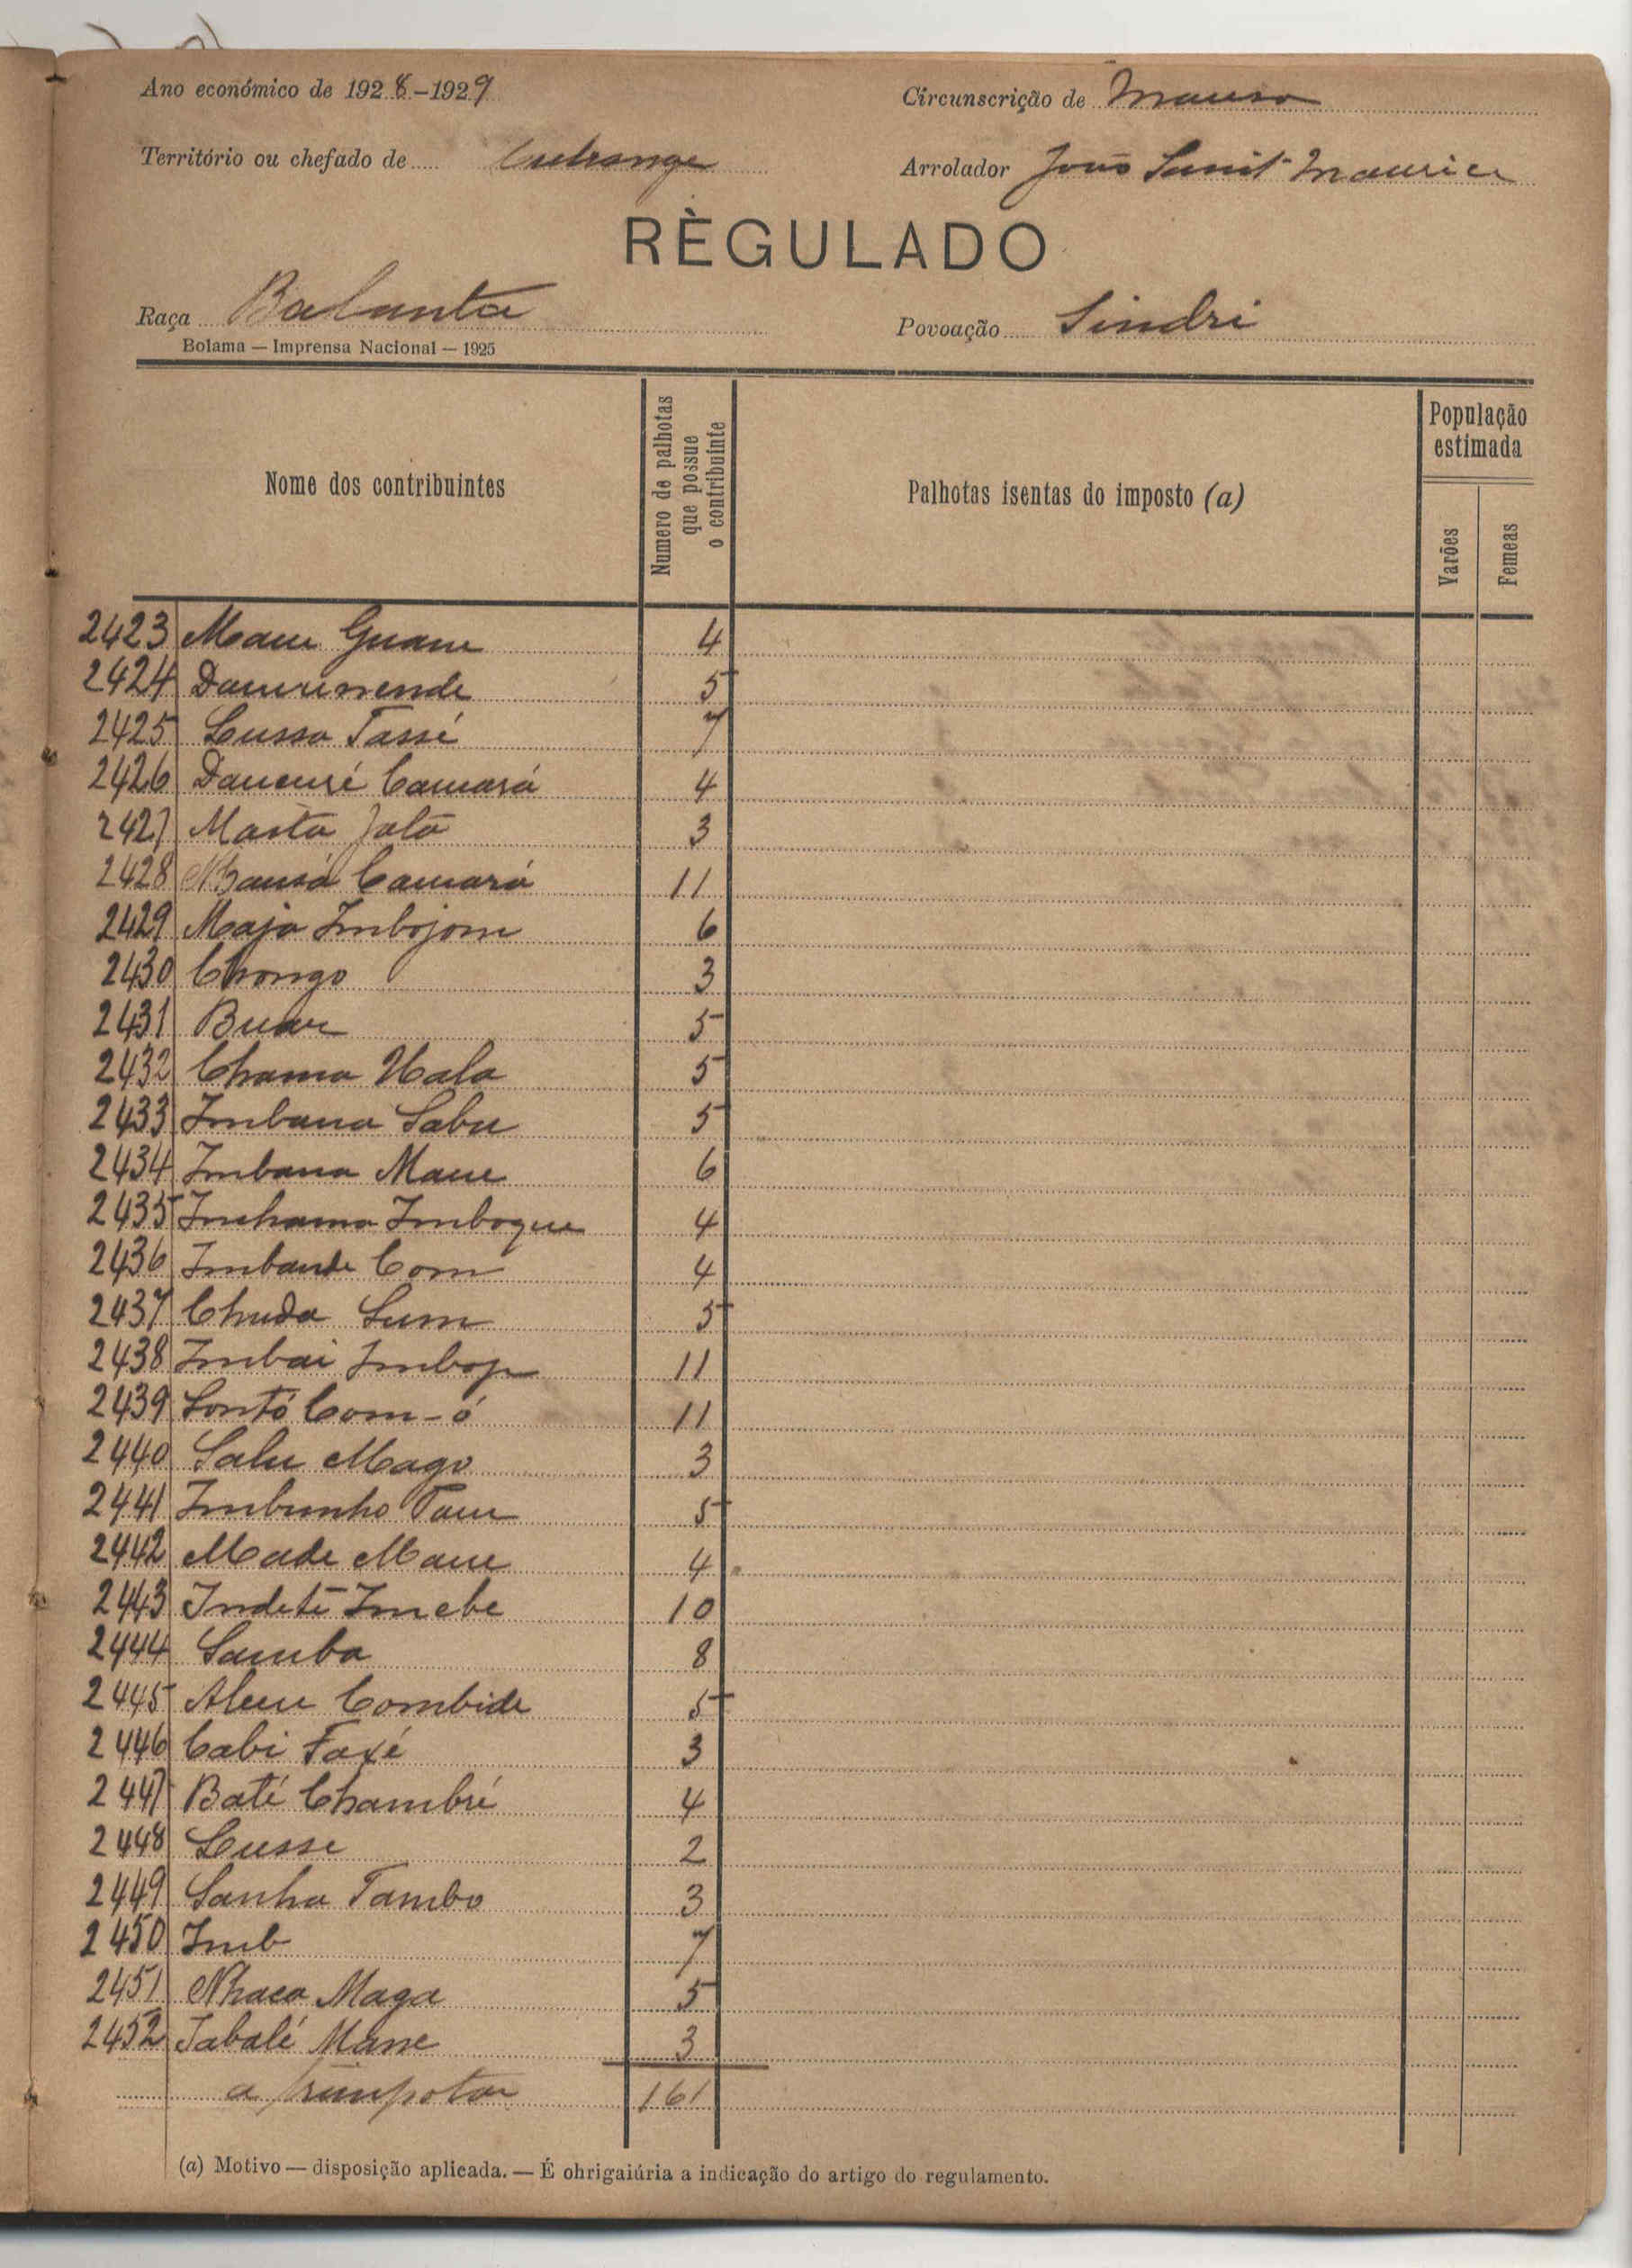 Ano económico de 1928-1929
Circunscrição de Mansoa
Território ou chefado de Cubonge
Arrolador João Sanit Maurice
RÈGULADO
Raça Balanta
Povoação Sindri
Bolama — Imprensa Nacional — 1925
Nome dos contribuintes
Numero de palhotas que possue o contribuinte
Palhotas isentas do imposto (a)
População estimada
Varões
Femeas
2423 Mane Guane 4
2424 5
2425 Lussa Tassé 7
2426 Camará 4
2427 Marta Jatá 3
2428 Camará 11
2429 Maja Imbojom 6
2430 Chongo 3
2431 Buar 5
2432 Chama Uala 5
2433 Imbana Sabu 5
2434 Imbana Mane 6
2435 Inhama Imboque 4
2436 Imbande Com 4
2437 Chuda Sum 5
2438 Imbai Imbop 11
2439 Sontó Com-ó 11
2440 Salu Mago 3
2441 Imbunho Tam 5
2442 Made Mane 4
2443 Indeti Imebe 10
2444 Samba 8
2445 Combide 5
2446 Cabi Faxé 3
2447 Baté Chambré 4
2448 Lusse 2
2449 Sanha Tambo 3
2450 Imb 7
2451 Nhaca Maga 5
2452 Jabalé Mane 3
a 161
(a) Motivo — disposição aplicada. — É ohrigaiúria a indicação do artigo do regulamento.